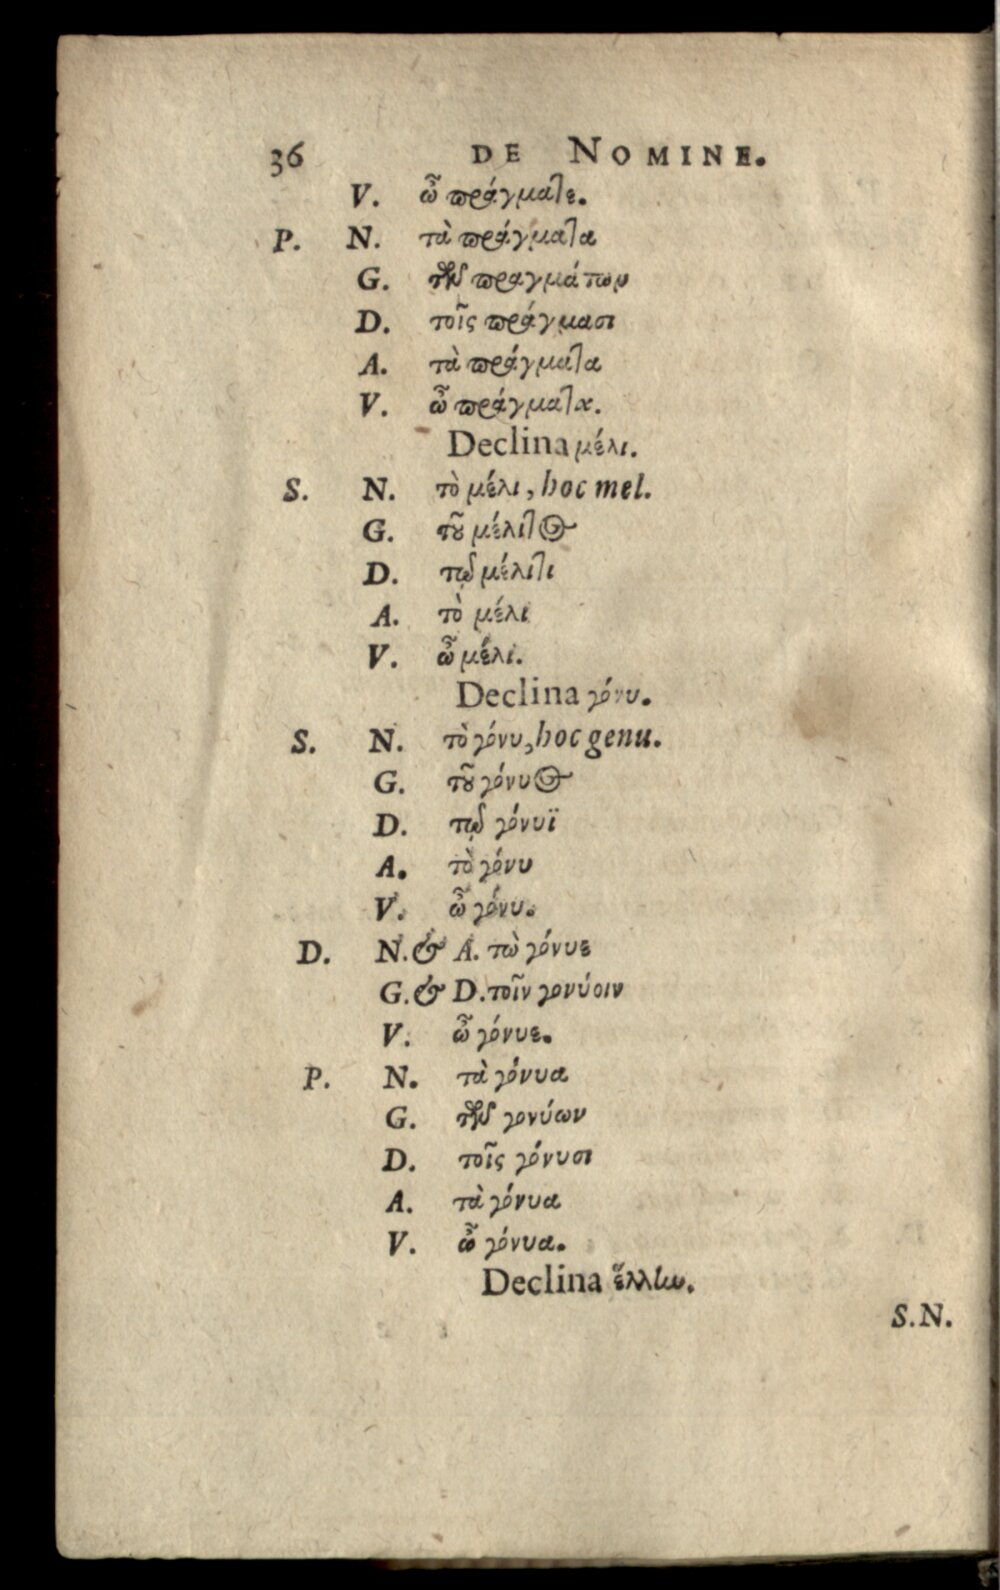 36 DE NOMINE.
V. ὦ πράγματε.
P. N. τὰ πράγματα
G. τῶν πραγμάτων
D. τοῖς πράγμασι
A. τὰ πράγματα
V. ὦ πράγματα.
Declina μέλι.
S. N. τὸ μέλι, hoc mel.
G. τοῦ μέλιτος
D. τῷ μέλιτι
A. τὸ μέλι
V. ὦ μέλι.
Declina γόνυ.
S. N. τὸ γόνυ, hoc genu.
G. τοῦ γόνυος
D. τῷ γόνυϊ
A. τὸ γόνυ
V. ὦ γόνυ.
D. N. & A. τὼ γόνυε
G. & D. τοῖν γονύοιν
V. ὦ γόνυε.
P. N. τὰ γόνυα
G. τῶν γονύων
D. τοῖς γόνυσι
A. τὰ γόνυα
V. ὦ γόνυα.
Declina ἕλλην.
S. N.